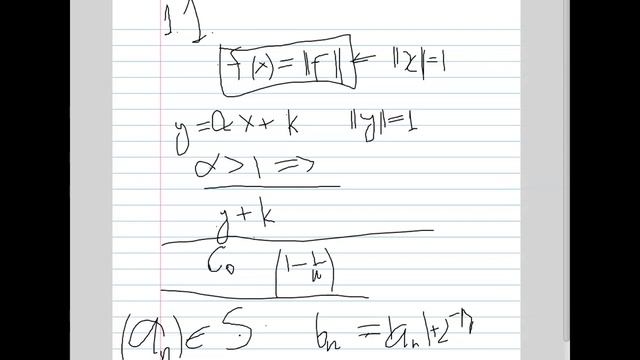 1.1.
f(x) = ||f|| ← ||x|=1
y = αx + k ||y||=1
α > 1 ⇒
y + k
C₀ (1 - 1/n)
(aₙ) ∈ S bₙ = |aₙ| + 2⁻ⁿ